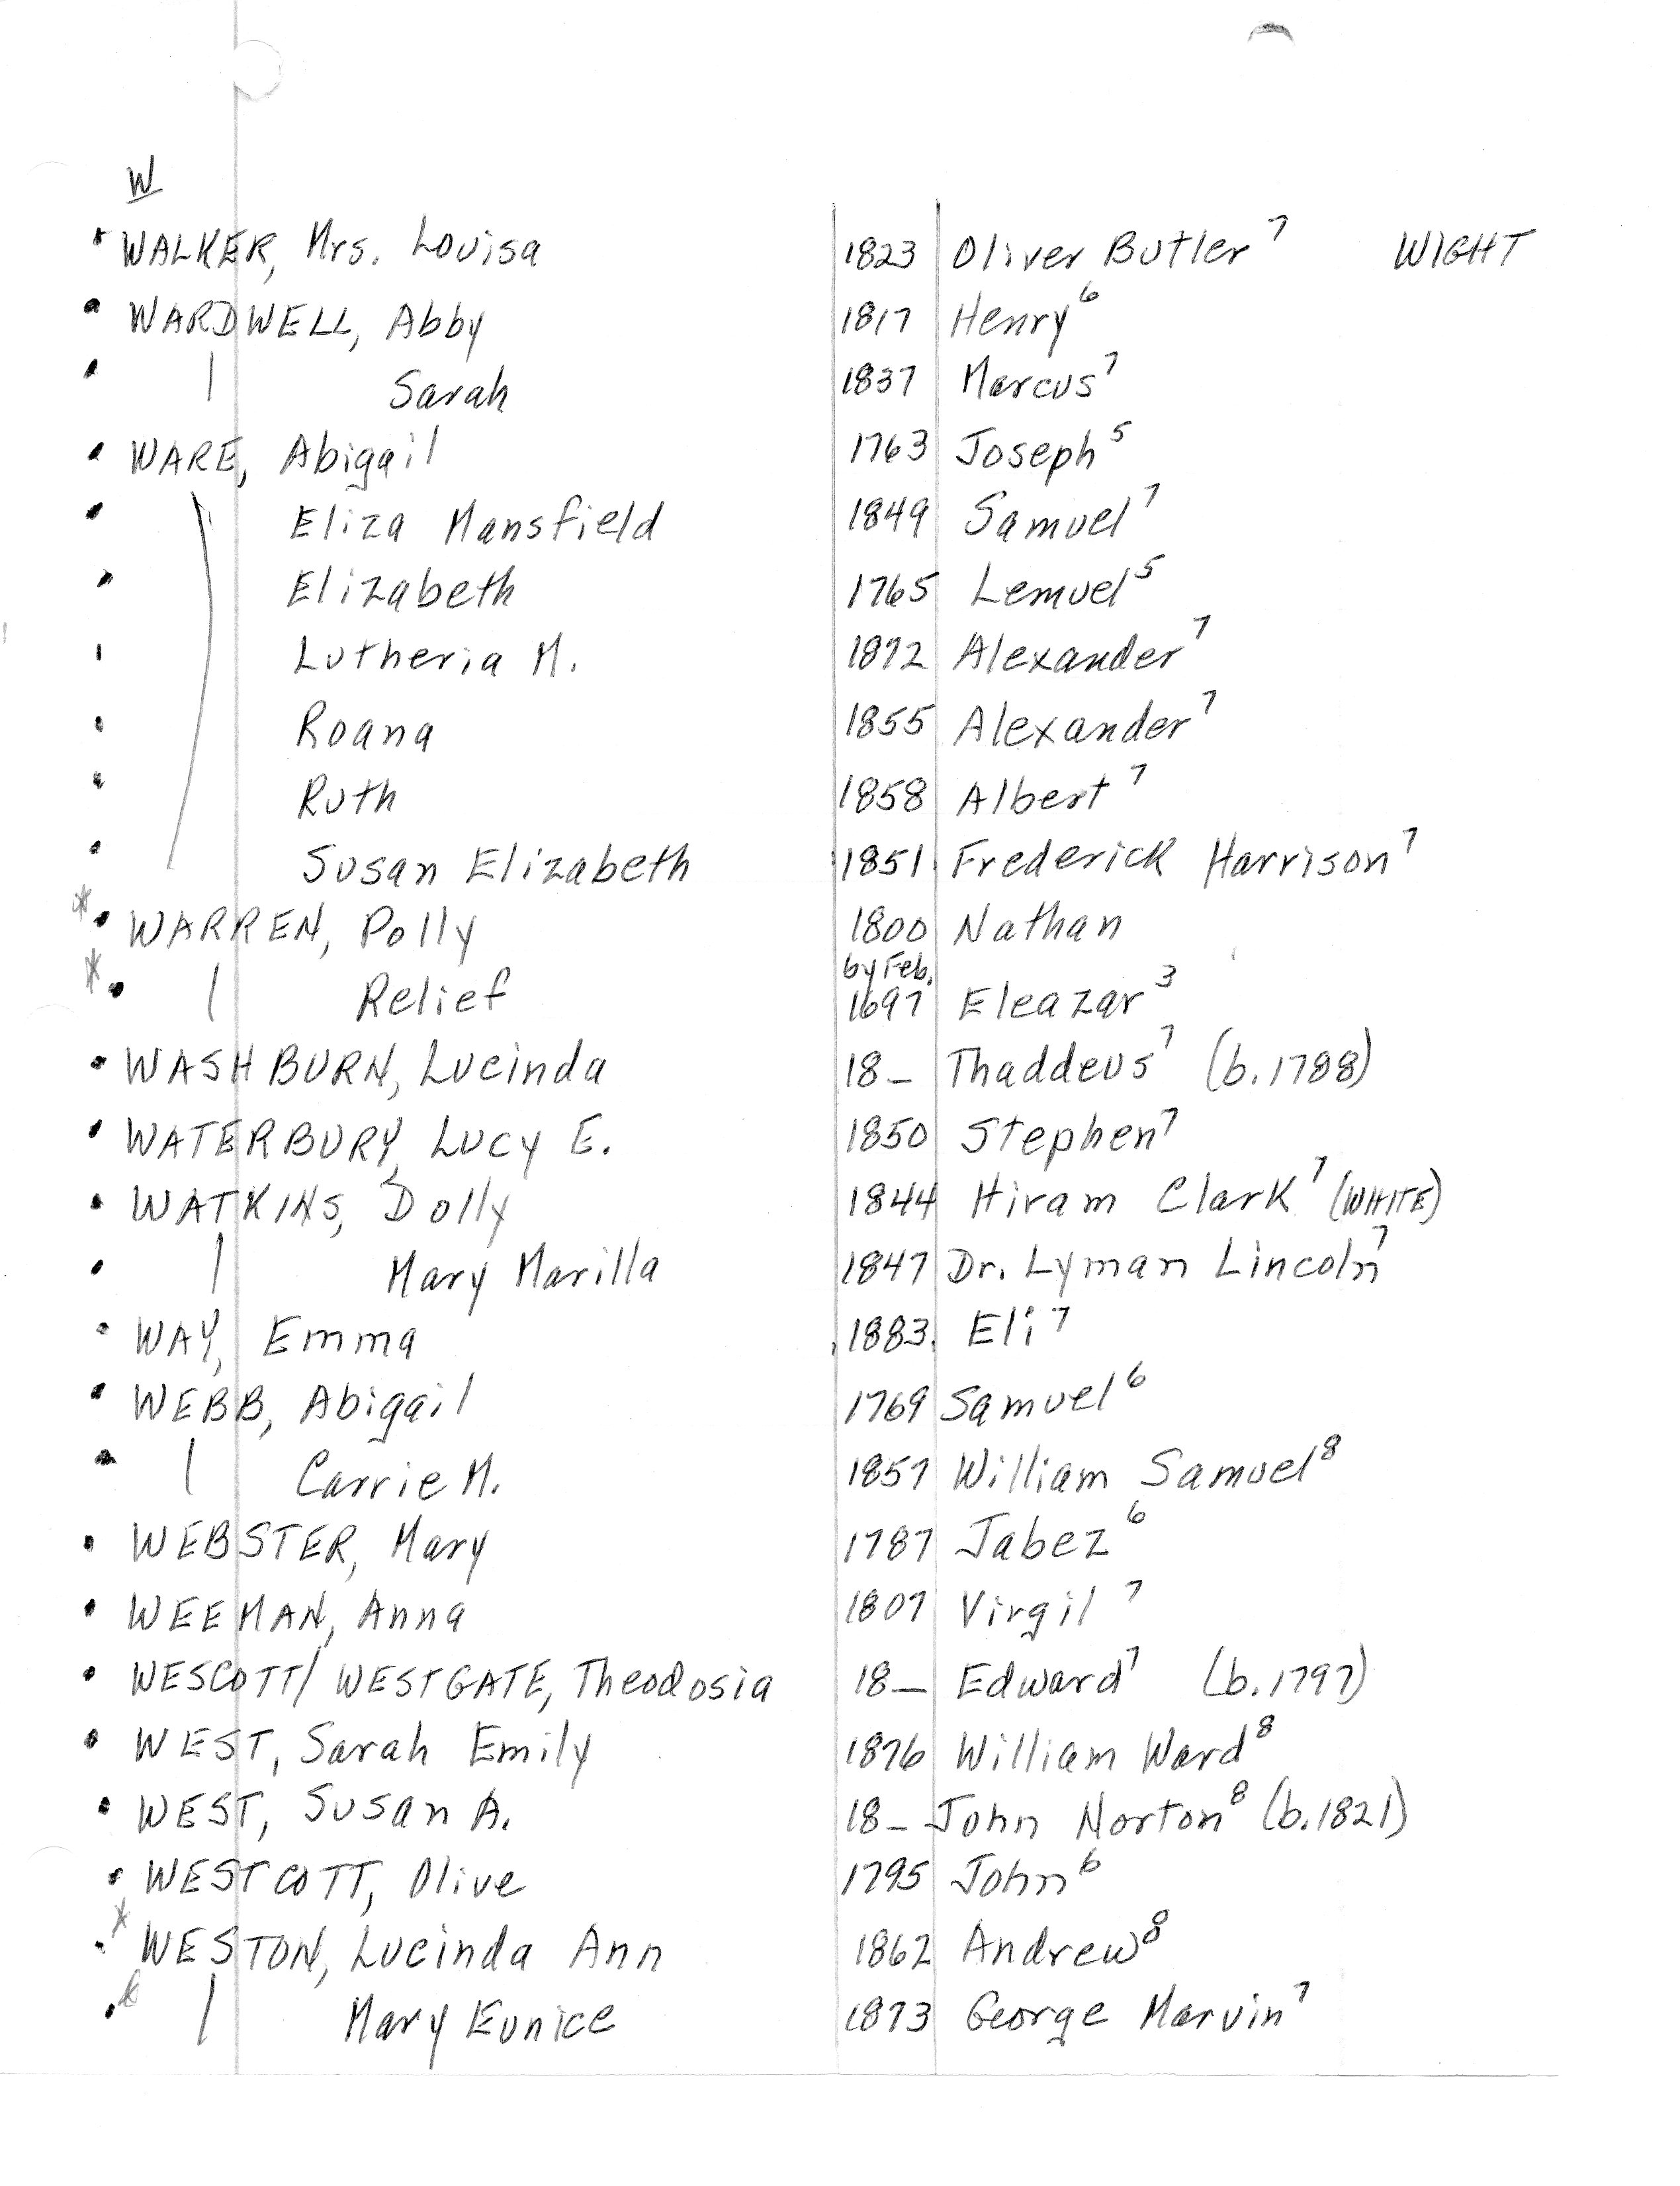 W
WALKER, Mrs. Louisa 1823 Oliver Butler⁷ WIGHT
WARDWELL, Abby 1817 Henry⁶
| Sarah 1837 Marcus⁷
WARE, Abigail 1763 Joseph⁵
Eliza Mansfield 1849 Samuel⁷
Elizabeth 1765 Lemuel⁵
Lutheria M. 1872 Alexander⁷
Roana 1855 Alexander⁷
Ruth 1858 Albert⁷
Susan Elizabeth 1851 Frederick Harrison⁷
* WARREN, Polly 1800 Nathan
by Feb.
* | Relief 1697 Eleazar³
WASHBURN, Lucinda 18_ Thaddeus⁷ (b.1788)
WATERBURY, Lucy E. 1850 Stephen⁷
WATKINS, Dolly 1844 Hiram Clark⁷ (WHITE)
| Mary Marilla 1847 Dr. Lyman Lincoln⁷
WAY, Emma 1883 Eli⁷
WEBB, Abigail 1769 Samuel⁶
| Carrie M. 1857 William Samuel⁸
WEBSTER, Mary 1787 Jabez⁶
WEEMAN, Anna 1807 Virgil⁷
WESCOTT/WESTGATE, Theodosia 18_ Edward⁷ (b.1797)
WEST, Sarah Emily 1876 William Ward⁸
WEST, Susan A. 18_ John Norton⁸ (b.1821)
WESTCOTT, Olive 1795 John⁶
* WESTON, Lucinda Ann 1862 Andrew⁸
* | Mary Eunice 1873 George Marvin⁷